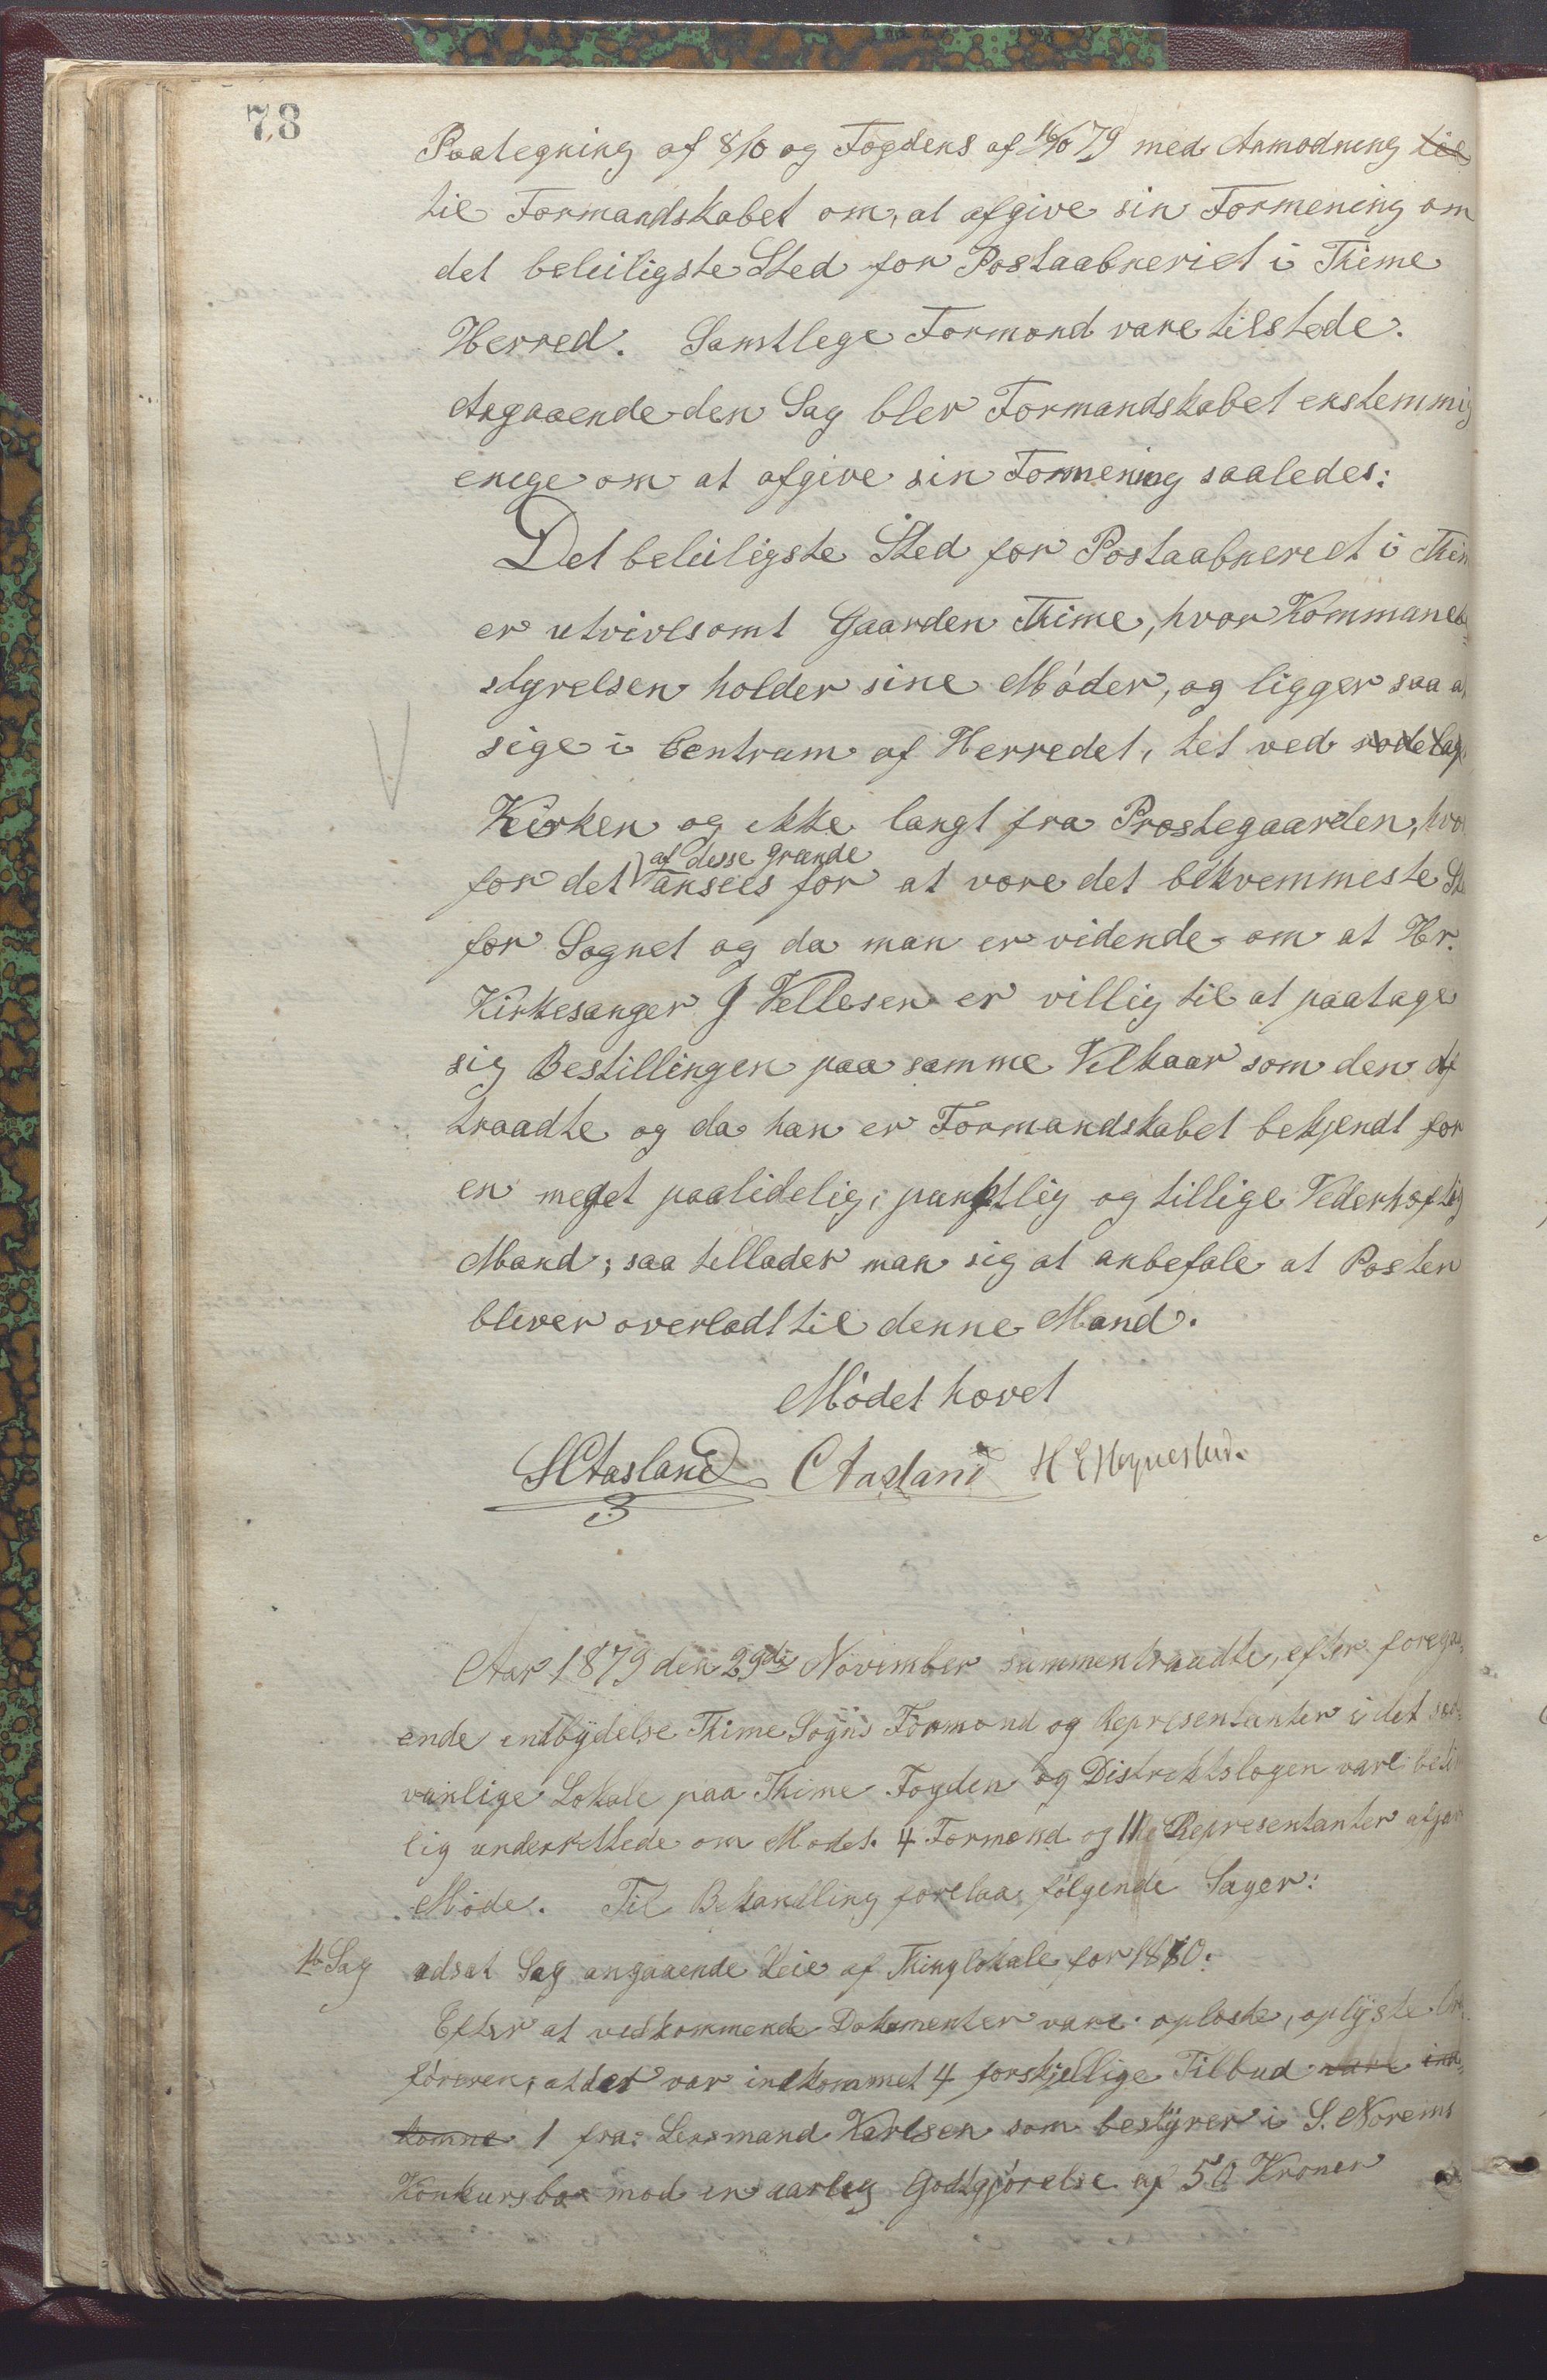 78
Paategning af 8/10 og Fogdens af 16/10 79 med Anmodning til
til Formandskabet om, at afgive sin Formening om
det beleiligste Sted for Postaabneriet i Thime
Herred. Samtlege Formænd vare tilstede.
Angaaende den Sag blev Formandskabet enstemmig
enege om at afgive sin Formening saaledes:
Det beleiligste Sted for Postaabneriet i Thim
er utvivlsomt Gaarden Thime, hvor Kommune
styrelsen holder sine Móder, og ligger saa a
sige i Centrum af Herredet, tet ved
Kirken og ikke langt fra Præstegaarden, hvo
af desse Grunde
for det ansees for at være det bekvemmeste St
for Sognet og da man er vidende om at Hr.
Kirkesanger J Vellesen er villig til at paatage
sig Bestillingen paa samme Vilkaar som den af
traadte og da han er Formandskabet bekjendt for
en meget paalidelig, punktlig og tillige Vederhæftig
Mand; saa tellader man sig at anbefale at Posten
bliver overladt til denne Mand.
Módet hævet
S C Aasland C Aasland H E Hognestad.
Aar 1879 den 29de November sammentraadte, efter foregaa
ende indbydelse Thime Sogns Formænd og Repræsentanter i det sæd
vanlige Lokale paa Thime Fogden og Distriktslægen vare betim
lig underrettede om Mødet. 4 Formænd og 11 Repræsentanter afgav
Møde. Til Behandling forelaa følgende Sager:
1te Sag udsat Sag angaaende Leie af Thinglokale for 1880.
Efter at vedkommende Dokumenter vare oplæste, oplyste
føreren, at det var indkommet 4 forskjellige Tilbud vare ind
komne 1 fra: Lensmand Karlsen som bestyrer i S. Norems
Konkursbo mod en aarleg Godtgjórelse af 50 Kroner